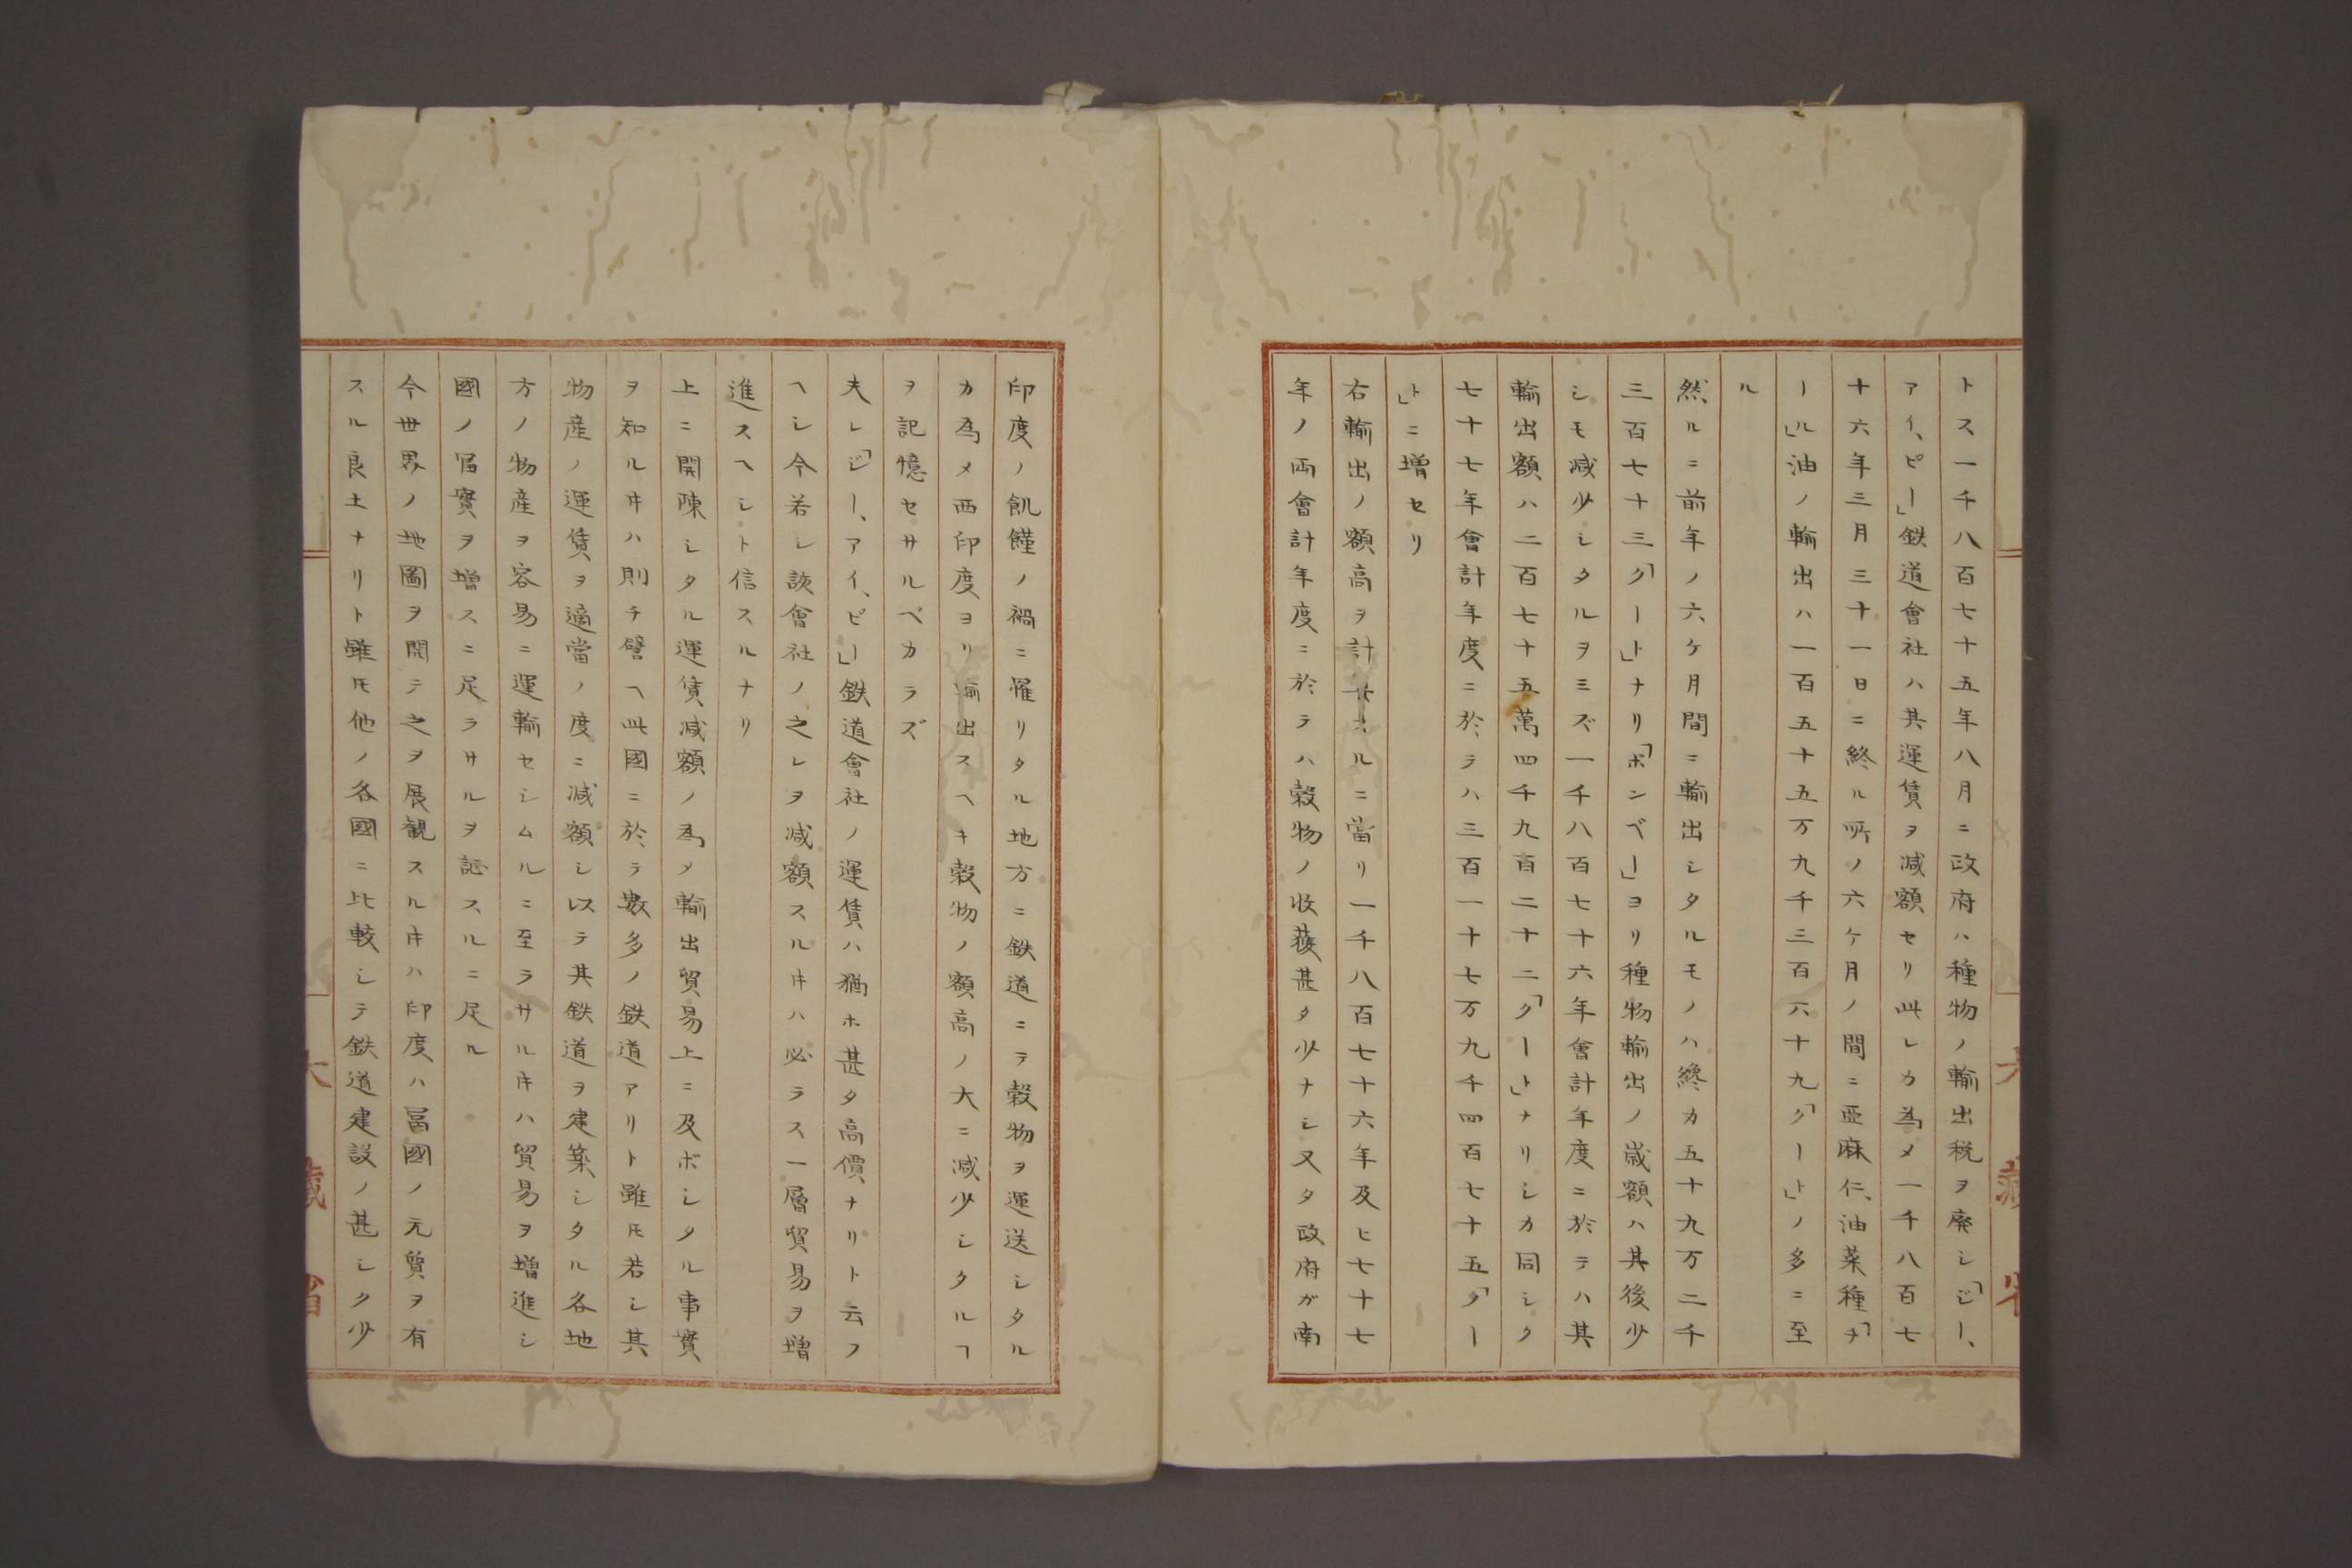 トス一千八百七十五年八月ニ政府ハ種物ノ輸出税ヲ廃シ「ジー、
アイ、ピー」鉄道會社ハ其運賃ヲ減額セリ此レカ為メ一千八百七
十六年三月三十一日ニ終ル所ノ六ケ月ノ間ニ亜麻仁、油菜種「ヲ
ール」油ノ輸出ハ一百五十五万九千三百六十九「クート」ノ多ニ至
ル
然ルニ前年ノ六ケ月間ニ輸出シタルモノハ終カ五十九万二千
三百七十三「クート」ナリ「ボンベー」ヨリ種物輸出ノ歳額ハ其後少
シモ減少シタルヲミズ一千八百七十六年會計年度ニ於テハ其
輸出額ハ二百七十五萬四千九百二十二「クート」ナリシカ同シク
七十七年會計年度ニ於テハ三百一十七万九千四百七十五「クー
ト」ニ増セリ
右輸出ノ額高ヲ計サスルニ當リ一千八百七十六年及ヒ七十七
年ノ両會計年度ニ於テハ穀物ノ收蓰甚タ少ナシ又タ政府ガ南
印度ノ飢饉ノ禍ニ罹リタル地方ニ鉄道ニテ穀物ヲ運送シタル
カ為メ西印度ヨリ輸出スヘキ穀物ノ額高ノ大ニ減少シタルヿ
ヲ記憶セサルベカラズ
夫レ「ジー、アイ、ピー」鉄道會社ノ運賃ハ猶ホ甚タ高價ナリト云フ
ヘシ今若シ該會社ノ之レヲ減額スルキハ必ラス一層貿易ヲ増
進スヘシト信スルナリ
上ニ開陳シタル運賃減額ノ為メ輸出貿易上ニ及ボシタル事實
ヲ知ルキハ則チ譬ヘ此國ニ於テ數多ノ鉄道アリト雖トモ若シ其
物産ノ運賃ヲ適當ノ度ニ減額シ以テ其鉄道ヲ建築シタル各地
方ノ物産ヲ容易ニ運輸セシムルニ至ラサルキハ貿易ヲ増進シ
國ノ冨實ヲ増スニ足ラサルヲ証スルニ足ル
今世界ノ地圖ヲ開テ之ヲ展観スルキハ印度ハ冨國ノ元質ヲ有
スル良土ナリト雖トモ他ノ各國ニ比較シテ鉄道建設ノ甚シク少
大藏省